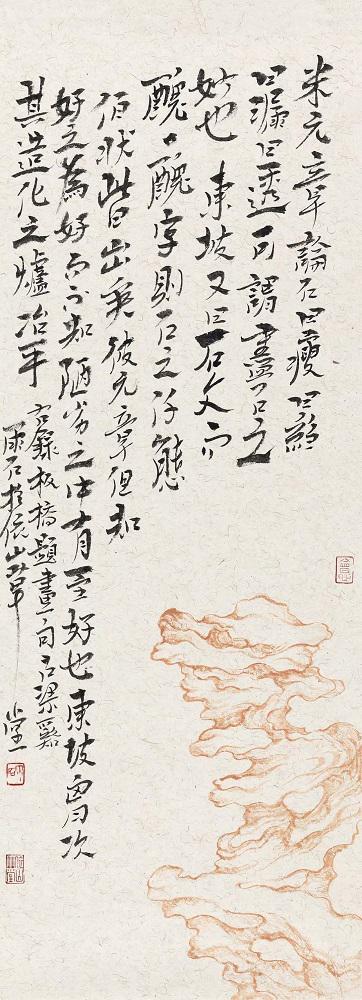 米元章論石曰瘦曰縐
曰漏曰透可謂盡石之
妙也東坡又曰石文而
醜一醜字則石之千態
狀皆出矣彼元章但知
好之為好而不知陋劣之中有至好也東坡胸次
其造化之爐冶乎
右錄板橋題畫句
雨石於山草堂